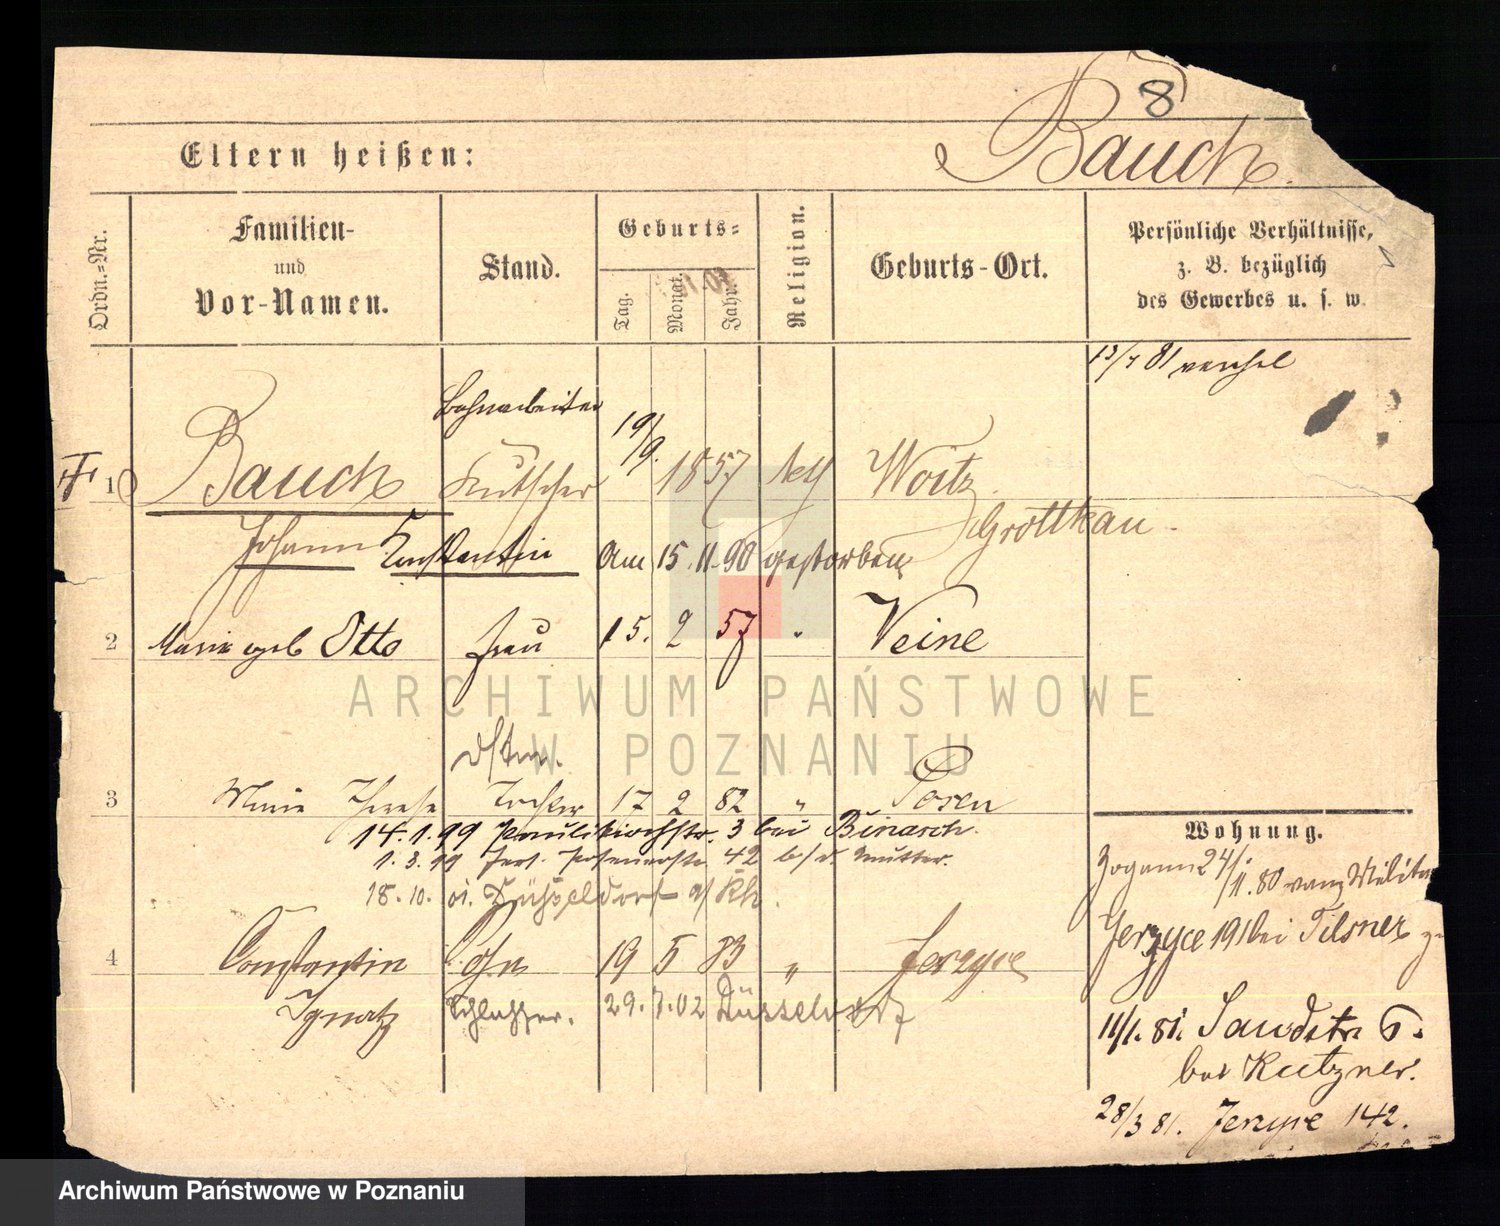 8
Eltern heißen:
Bauch.
Ordn.=Nr.
Familien-
und
Vor-Namen.
Stand.
Geburts=
Tag.
Monat.
Jahr.
Religion.
Geburts-Ort.
Persönliche Verhältnisse,
z. B. bezüglich
des Gewerbes u. s. w.
13/7 81
Bahnarbeiter
19/9.
1
Bauch
Kutscher
1857
kth
Woitz
Grottkau
Johann Konstantin
Am 15. 11. 90 gestorben
2
Marie geb Otto
Frau
15. 2 57
"
Veine
ARCHIWUM PAŃSTWOWE
W POZNANIU
3
Marie Therese
Tochter
17 2 82
"
Posen
14.1.99 Paulikirchstr. 3 bei Binasch.
1.3.99 Jers. Posenerstr. 42 b/d. Mutter.
18.10. 01. Düsseldorf a/Rh.
4
Constantin
Sohn
19 5 83
"
Jerzyce
Ignatz
Schlosser.
29.7.02 Düsseldorf
Wohnung.
24/11.80 Militär
Jerzyce 191 bei Tilsner
11/1. 81. Sandstr. 6.
bei Kutzner.
28/3 81. Jerzyce 142.
Archiwum Państwowe w Poznaniu